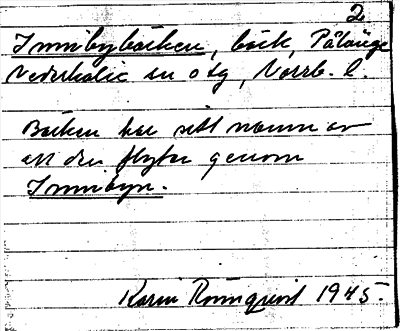 2
Innibybäcken, bäck, Pålänge
Nederkalix sn o tg, Norrb. l.
Bäcken har sitt namn av
att den flyter genom
Innibyn.
Karin Rönnqvist 1945.